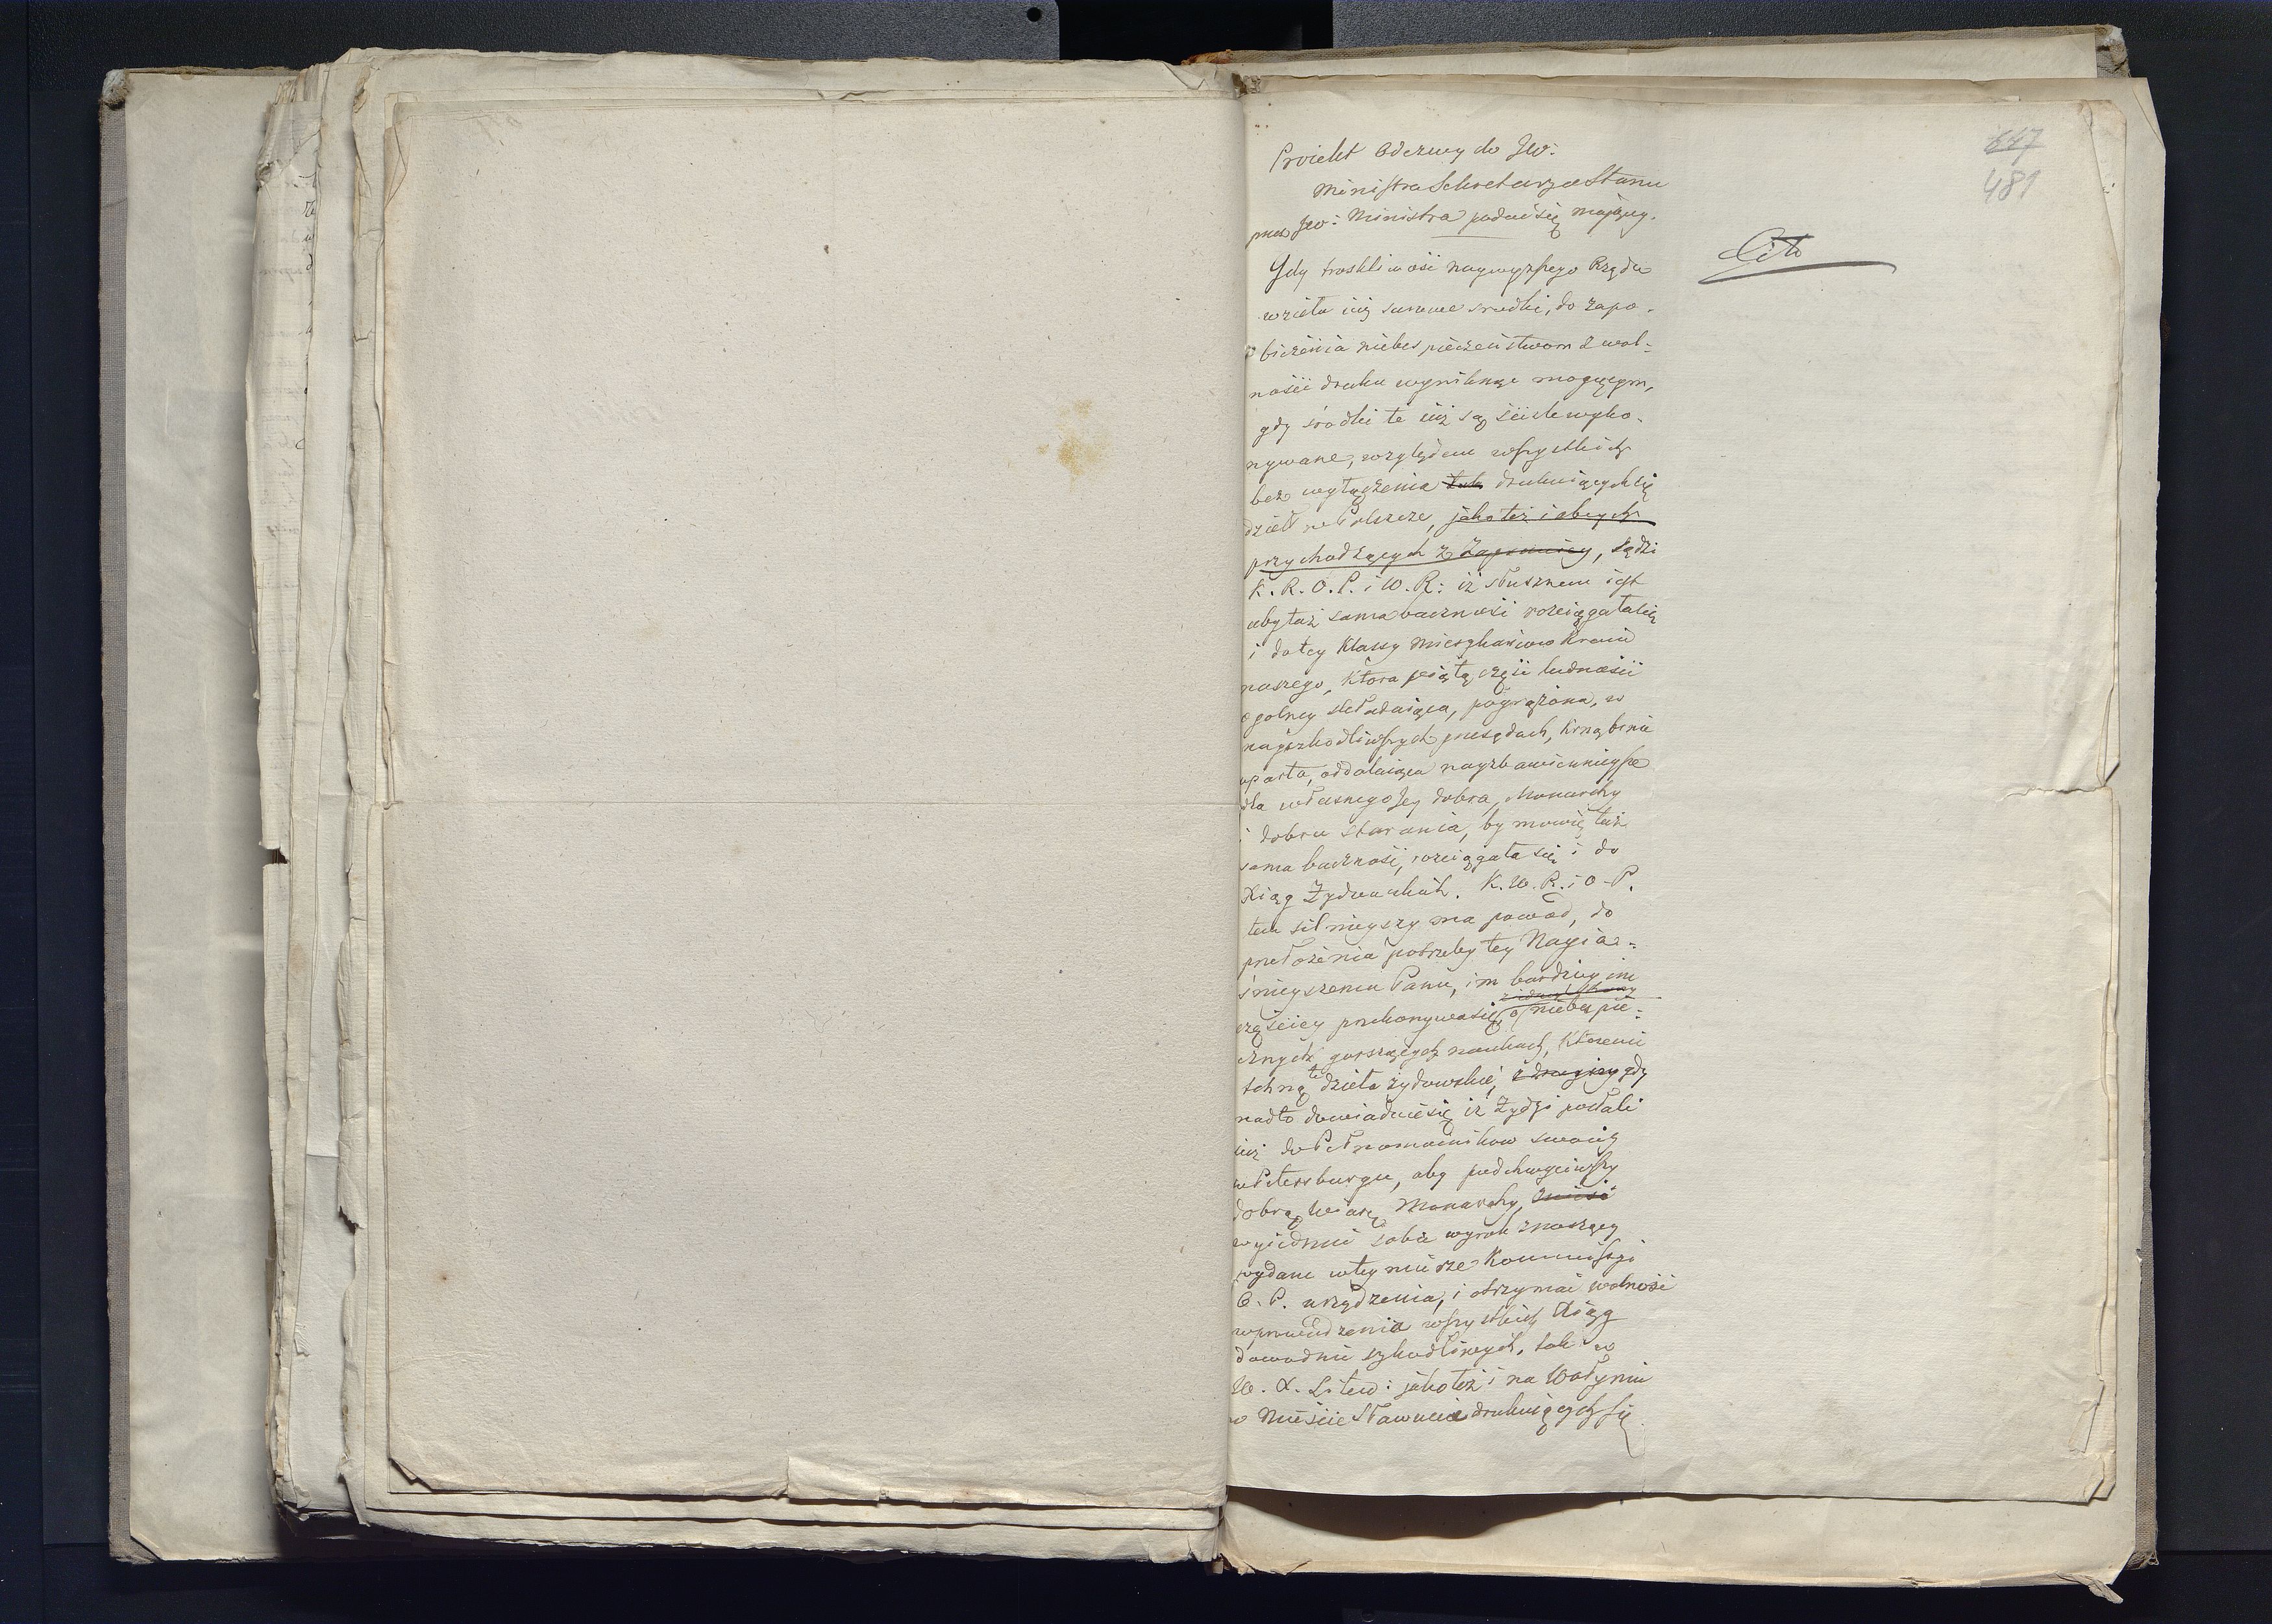 647
481
Proiekt Odezwy do JW:
Ministra Sekretarza Stanu
przez JW: Ministra podać się maiącey.
Cito
Gdy troskliwość naywyższego Rządu
wzięła iuż surowe srodki, do zapo-
bieżenia niebespieczeństwom z wol-
ności druku wyniknąć mogącym,
gdy środki te iuż są ściśle wyko-
nywane, względem wszystkich
bez wyłączenia tak drukuiących się
dzieł w Polszcze, jako też i obcych
przychodzących z Zagranicy, sądzi
K. R. O. P. i W. R: iż słusznem iest
aby taż sama baczność rozciągała się
i do tey Klassy Mieszkańcow Kraiu
naszego, ktora piątą część ludności
ogolney składaiąca, pogrążona, w
nayszkodliwszych przesądach, krnąbrnie
uparta, oddalaiąca nayzbawiennieysze
dla własnego Jey dobra, Monarchy
i dobra starania, by mowię taż
sama baczność, rozciągała się i do
Xiąg Żydowskich. K. W. R. i O. P.
tem silnieyszy ma powod, do
przełożenia potrzeby tey Nayia-
śnieyszemu Panu, im bardziey im
z iedney strony
częściey przekonywa się, o niebespie-
cznych gorszących naukach, ktoremi
tchną te dzieła żydowskie, z drugiey gdy
nadto dowiaduie się iż Żydzi posłali
iuż do Pełnomocnikow swoich
w Petersburgu, aby podchwyciwszy
dobrą wiarę Monarchy,
wyiednali sobie wyrok znoszący
wydane w tey mierze Kommissyi
O. P. urządzenia, i otrzymać wolność
wprowadzenia wszystkich Xiąg
dowodnie szkodliwych, tak w
W. X. Litew: jako też i na Wołyniu
w Mieście Sławucie drukuiących się